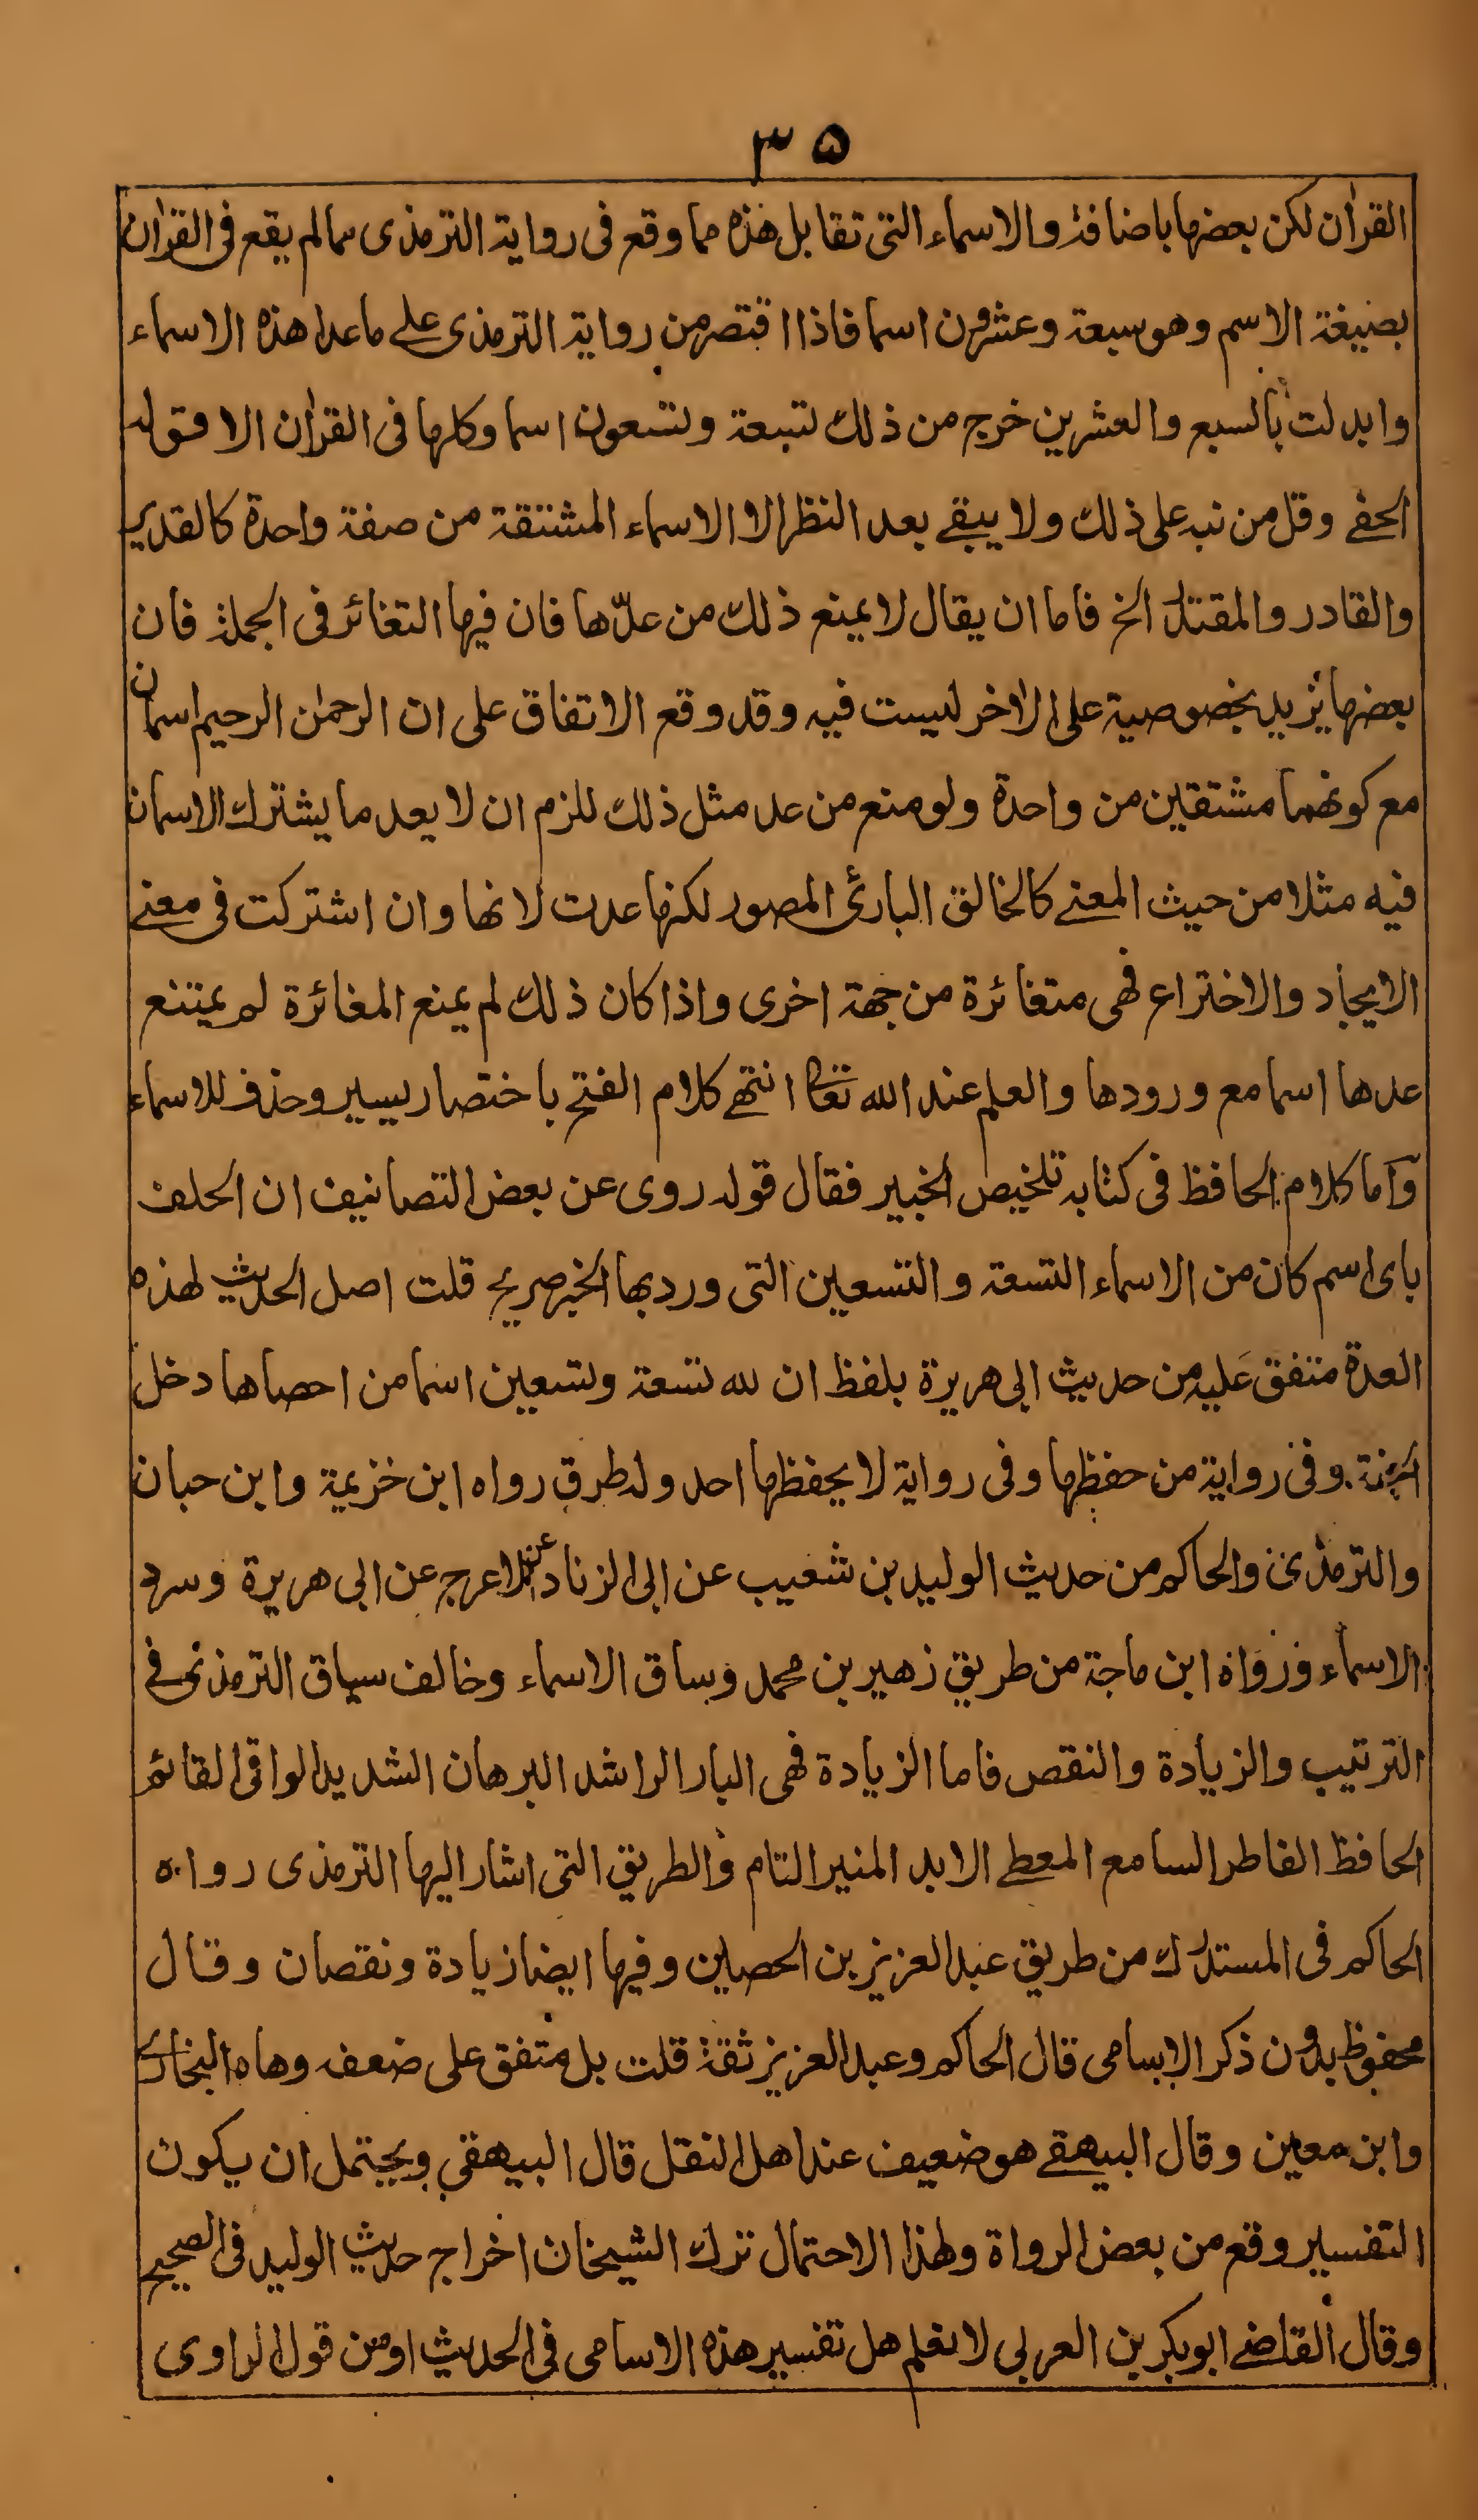 ٣٥
القرأن لكن بعضها باضافة والاسماء التى تقابل هذه مما وقع فى رواية الترمذى مما لم يقع فى القرأن
بصيغة الاسم وهو سبعة وعشرون اسما فاذا اقتصر من رواية الترمذى على ما عدا هذه الاسماء
وابدلت بالسبع والعشرين خرج من ذلك تسعة وتسعون اسما وكلها فى القرأن الا قوله
الحفے وقل من نبه على ذلك ولا يبقے بعد النظر الا الاسماء المشتقة من صفة واحدة كالقدير
والقادر والمقتدر الخ فاما ان يقال لا يمنع ذلك من عدّها فان فيها التغائر فى الجملة فان
بعضها يزيد بخصوصية على الأخر ليست فيه وقد وقع الاتفاق على ان الرحمن الرحيم اسمان
مع كونهما مشتقين من واحدة ولو منع من عد مثل ذلك للزم ان لا يعد ما يشترك الاسمان
فيه مثلا من حيث المعنے كالخالق البارئ المصور لكنها عدت لانها وان اشتركت فى معنے
الايجاد والاختراع فهى متغائرة من جهة اخرى واذا كان ذلك لم يمنع المغائرة لم يمتنع
عدها اسما مع ورودها والعلم عند الله تعالى انتهے كلام الفتح باختصار يسير وحذف للاسماء
وآما كلام الحافظ فى كتابه تلخيص الخبير فقال قوله روى عن بعض التصانيف ان الحلف
باى اسم كان من الاسماء التسعة والتسعين التى ورد بها الخبر صريح قلت اصل الحديث لهذه
العدة متفق عليه من حديث ابى هريرة بلفظ ان لله تسعة وتسعين اسما من احصاها دخل
الجنة وفى رواية من حفظها وفى رواية لا يحفظها احد وله طرق رواه ابن خزيمة وابن حبان
والترمذى والحاكم من حديث الوليد بن شعيب عن ابى الزناد عن الاعرج عن ابى هريرة وسرد
الاسماء ورواه ابن ماجة من طريق زهير بن محمد وساق الاسماء وخالف سياق الترمذى فے
الترتيب والزيادة والنقص فاما الزيادة فهى البار الراشد البرهان الشديد الواقى القائم
الحافظ الفاطر السامع المعطے الابد المنير التام والطريق التى اشار اليها الترمذى رواه
الحاكم فى المستدرك من طريق عبد العزيز بن الحصين وفيها ايضا زيادة ونقصان وقال
محفوظ بدون ذكر الاسامى قال الحاكم وعبد العزيز ثقة قلت بل متفق على ضعفه وهاه البخارى
وابن معين وقال البيهقے هو ضعيف عند اهل النقل قال البيهقى ويحتمل ان يكون
التفسير وقع من بعض الرواة ولهذا الاحتمال ترك الشيخان اخراج حديث الوليد فى الصحيح
وقال القاضے ابو بكر بن العربى لا نعلم هل تفسير هذه الاسامى فى الحديث او من قول الراوى